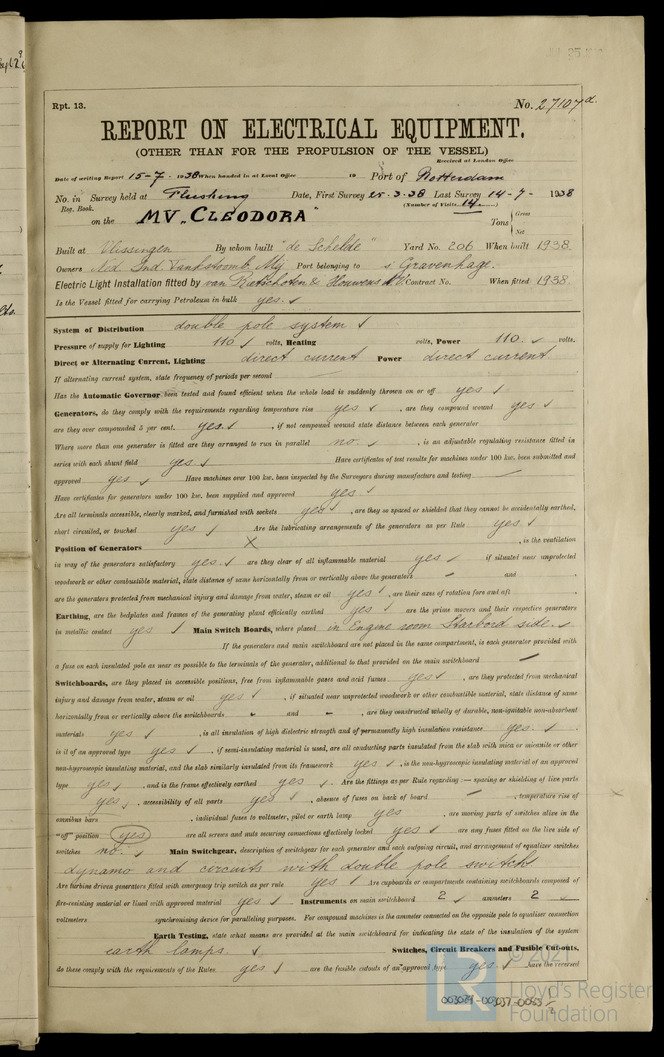 Rpt. 13.
No. 27107d.
REPORT ON ELECTRICAL EQUIPMENT.
(OTHER THAN FOR THE PROPULSION OF THE VESSEL)
Received at London Office
Date of writing Report 15-7- 1938 When handed in at Local Office 19 Port of Rotterdam
No. in Survey held at Flushing Date, First Survey 25.3.38 Last Survey 14-7- 1938
Reg. Book. (Number of Visits 14.)
on the MV "CLEODORA" Tons { Gross
Net
Built at Vlissingen By whom built "de Schelde" Yard No. 206 When built 1938
Owners Ned. Ind. Tankstoomb. Mij Port belonging to s Gravenhage.
Electric Light Installation fitted by van Rietschoten & Houwens N.V. Contract No. When fitted 1938
Is the Vessel fitted for carrying Petroleum in bulk yes. ✓
System of Distribution double pole system ✓
Pressure of supply for Lighting 110 ✓ volts, Heating volts, Power 110. ✓ volts.
Direct or Alternating Current, Lighting direct current Power direct current
If alternating current system, state frequency of periods per second
Has the Automatic Governor been tested and found efficient when the whole load is suddenly thrown on or off yes ✓
Generators, do they comply with the requirements regarding temperature rise yes ✓, are they compound wound yes ✓
are they over compounded 5 per cent. yes. ✓, if not compound wound state distance between each generator
Where more than one generator is fitted are they arranged to run in parallel no. ✓, is an adjustable regulating resistance fitted in
series with each shunt field yes ✓ Have certificates of test results for machines under 100 kw. been submitted and
approved yes ✓ Have machines over 100 kw. been inspected by the Surveyors during manufacture and testing —
Have certificates for generators under 100 kw. been supplied and approved yes ✓
Are all terminals accessible, clearly marked, and furnished with sockets yes ✓, are they so spaced or shielded that they cannot be accidentally earthed,
short circuited, or touched yes ✓ Are the lubricating arrangements of the generators as per Rule yes. ✓
Position of Generators X, is the ventilation
in way of the generators satisfactory yes. ✓ are they clear of all inflammable material yes ✓ if situated near unprotected
woodwork or other combustible material, state distance of same horizontally from or vertically above the generators - and
are the generators protected from mechanical injury and damage from water, steam or oil yes ✓, are their axes of rotation fore and aft
Earthing, are the bedplates and frames of the generating plant efficiently earthed yes ✓ are the prime movers and their respective generators
in metallic contact yes ✓ Main Switch Boards, where placed in Engine room Starbord side. ✓
If the generators and main switchboard are not placed in the same compartment, is each generator provided with
a fuse on each insulated pole as near as possible to the terminals of the generator, additional to that provided on the main switchboard —
Switchboards, are they placed in accessible positions, free from inflammable gases and acid fumes yes ✓, are they protected from mechanical
injury and damage from water, steam or oil yes ✓, if situated near unprotected woodwork or other combustible material, state distance of same
horizontally from or vertically above the switchboards - and -, are they constructed wholly of durable, non-ignitable non-absorbent
materials yes ✓, is all insulation of high dielectric strength and of permanently high insulation resistance yes. ✓
is it of an approved type yes ✓, if semi-insulating material is used, are all conducting parts insulated from the slab with mica or micanite or other
non-hygroscopic insulating material, and the slab similarly insulated from its framework yes ✓, is the non-hygroscopic insulating material of an approved
type yes ✓, and is the frame effectively earthed yes ✓. Are the fittings as per Rule regarding:— spacing or shielding of live parts
yes ✓, accessibility of all parts yes ✓, absence of fuses on back of board -, temperature rise of
omnibus bars, individual fuses to voltmeter, pilot or earth lamp yes, are moving parts of switches alive in the
"off" position yes are all screws and nuts securing connections effectively locked yes ✓ are any fuses fitted on the live side of
switches no. ✓ Main Switchgear, description of switchgear for each generator and each outgoing circuit, and arrangement of equalizer switches
dynamo and circuits with double pole switchs
Are turbine driven generators fitted with emergency trip switch as per rule yes ✓ Are cupboards or compartments containing switchboards composed of
fire-resisting material or lined with approved material yes ✓ Instruments on main switchboard 2 ✓ ammeters 2
voltmeters synchronising device for paralleling purposes. For compound machines is the ammeter connected on the opposite pole to equaliser connection
Earth Testing, state what means are provided at the main switchboard for indicating the state of the insulation of the system
earth lamps. ✓ Switches, Circuit Breakers and Fusible Cut-outs,
do these comply with the requirements of the Rules yes ✓ are the fusible cutouts of an approved type yes. ✓, have the reversed
003079-003037-0033 1/2
© 2021
LR
Lloyd's Register
Foundation